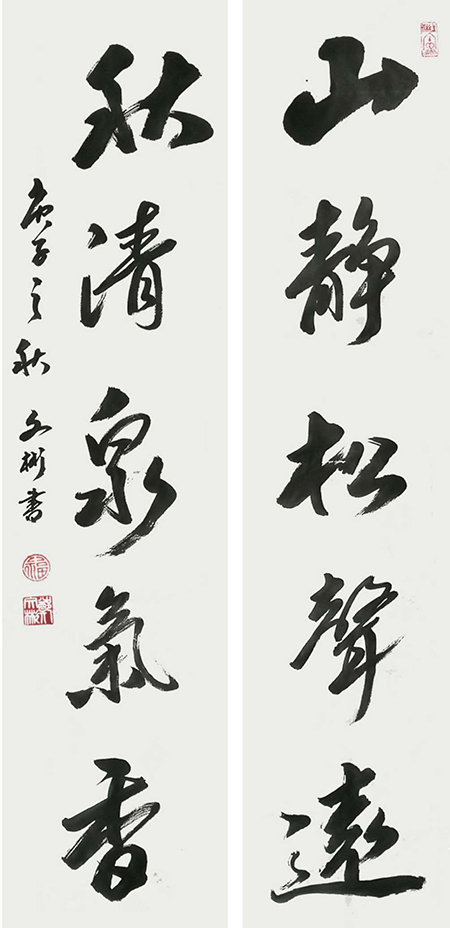 山静松聲遠
秋清泉氣香
庚子之秋 文彬書